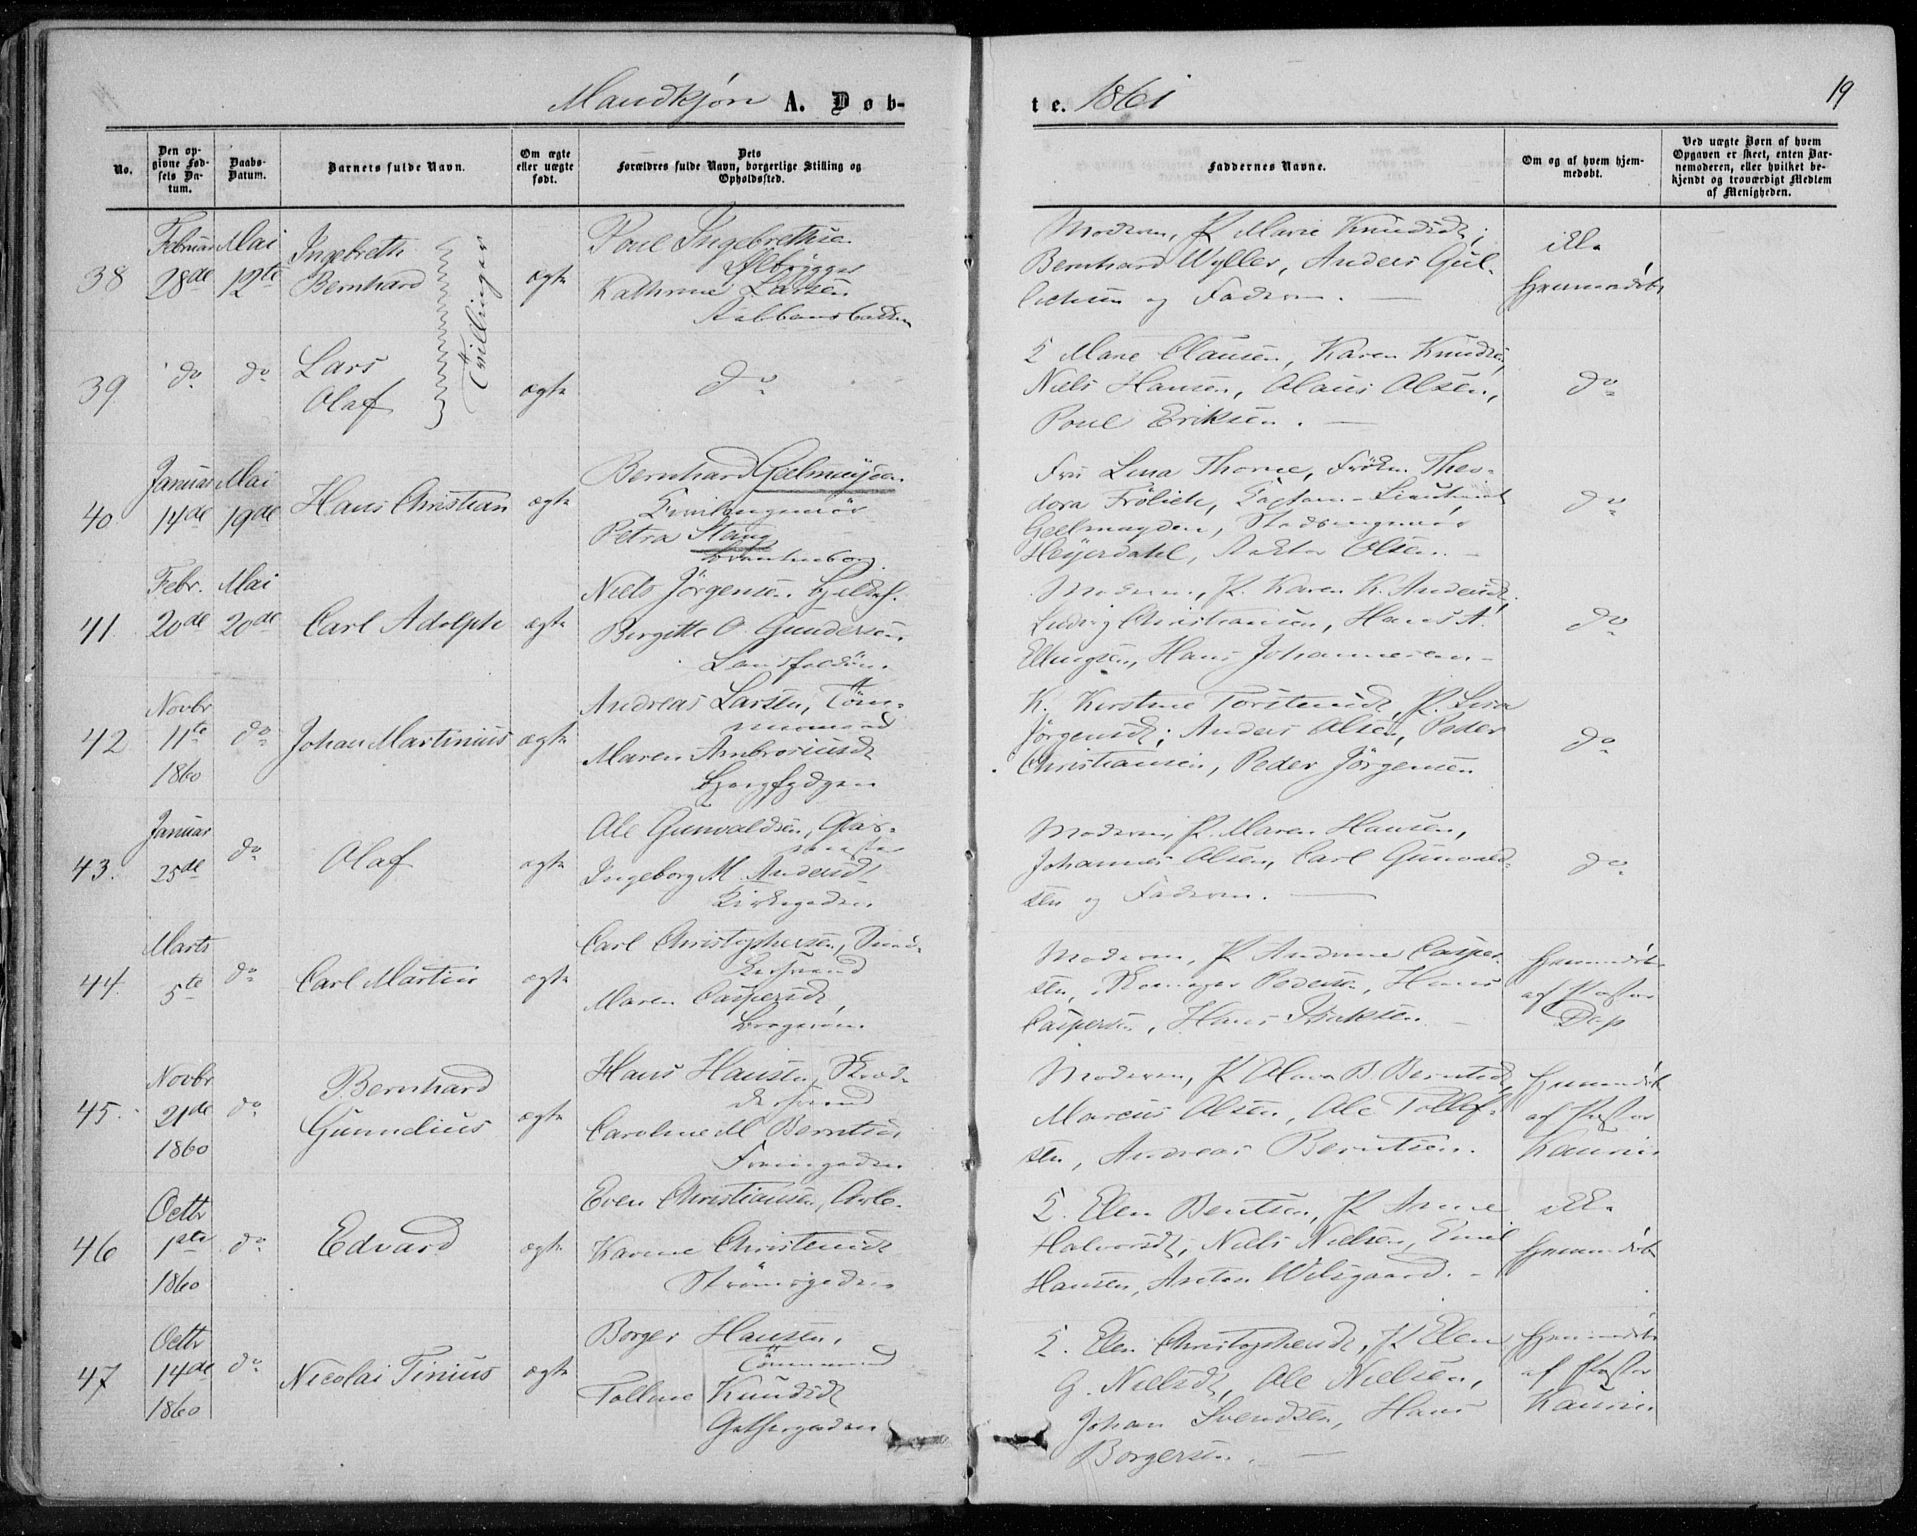 Mandkjøn A. Døb-
te. 1861
19
No.
Den op-
givne Fød-
sels Da-
tum.
Daabs-
Datum.
Barnets fulde Navn.
Om ægte
eller uægte
født.
Dets
Forældres fulde Navn, borgerlige Stilling og
Opholdssted.
Faddernes Navne.
Om og af hvem hjem-
medøbt.
Ved uægte Børn af hvem
Opgaven er skeet, enten Bar-
nemoderen, eller hvilket be-
kjendt og troværdigt Medlem
af Menigheden.
38
Februar
28de
Mai
12te
Ingebreth
Bernhard
Tvillinger
ægte
Poul Ingebrethse
Kathrine Larsen
Moderen, P. Marie Knudsdt;
Bernhard Wyller, Anders Gul-
og Faderen.
ikke
hjemmedøbt
39
do
do
Lars
Olaf
ægte
do
Marie Clausen, Karen Knudsen,
Niels Hansen, Olaus Olsen,
Poul Eriksen.
do
40
Januar
14de
Mai
19de
Hans Christian
ægte
Bernhard Geelmuyden
Petra Stang
Fru Lina Thorne, Frøken Theo-
dora Frölich,
Geelmuyden, Stadsingeniör
Heyerdahl, Olsen.
do
41.
Febr.
20de
Mai
20de
Carl Adolph
ægte
Niels Jörgensen
Birgitte O. Gundersen
Landfaldöen
Moderen, P. Karen K. Andersdt,
Ludvig Christiansen, Hans A.
Ellingsen, Hans Johannesen
do
42
Novbr
11te
1860
do
Johan Martinius
ægte
Andreas Larsen, Töm-
mermand
Maren Ambrosiusdt
K. Kirstine Torstensdt, P. Lisa
Jörgensdt; Anders Olsen, Peder
Christiansen, Peder Jörgensen
do
43.
Januar
25de
do
Olaf
ægte
Ole Gunvaldsen, Glas-
mester
Ingeborg M. Andersdt
Kirkegaden
Moderen, P. Maren Hansen,
Johannes Olsen, Carl Gunvald-
sen og Faderen.
do
44.
Marts
5te
do
Carl Martin
ægte
Carl Christophersen,
Maren Caspersdt,
Bragernes
Moderen, P. Andrine Casper-
sen, Pedersen, Hans
Caspersen, Hans
hjemmedøbt
af Pastor
Dop
45.
Novbr
21de
1860
do
Bernhard
Gunnelius
ægte
Hans Hansen,
Caroline M. Berntsen
Moderen, P. B. Berntsdt
Marcus Olsen, Ole Tollef-
sen, Andreas Berntsen.
hjemmedøbt
af Pastor
Kaurin
46
Octbr
1ste
1860
do
Edvard
ægte
Even Christiansen, Arb.
Karine Christensdt
Strömsgaden
Elen Bentsen, P. Anne
Halvorsdt, Niels Nielsen, Emil
Hansen, Anton Wilsgaard.
ikke
hjemmedøbt
47
Octbr
14de
1860
do
Nicolai Tinius
ægte
Borger Hansen,
Tömmermand
Knudsdt
Elen Christophersdt, P. Elen
G. Nielsdt, Ole Nielsen,
Johan Svendsen, Hans
Borgersen.
hjemmedøbt
af Pastor
Kaurin